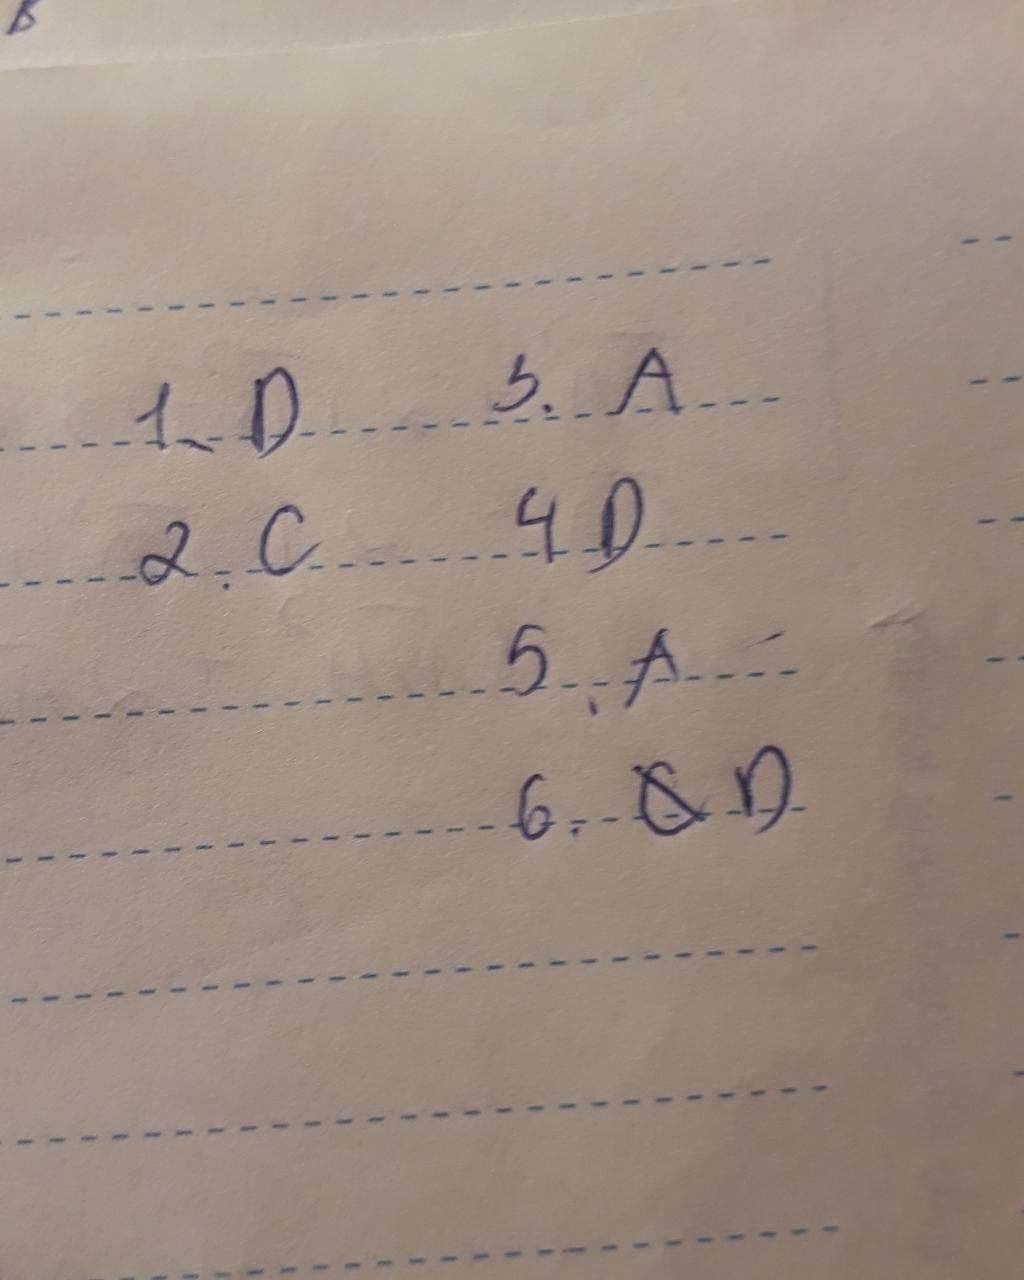 B
1. D 3. A
2. C 4 D
5. A
6. C D